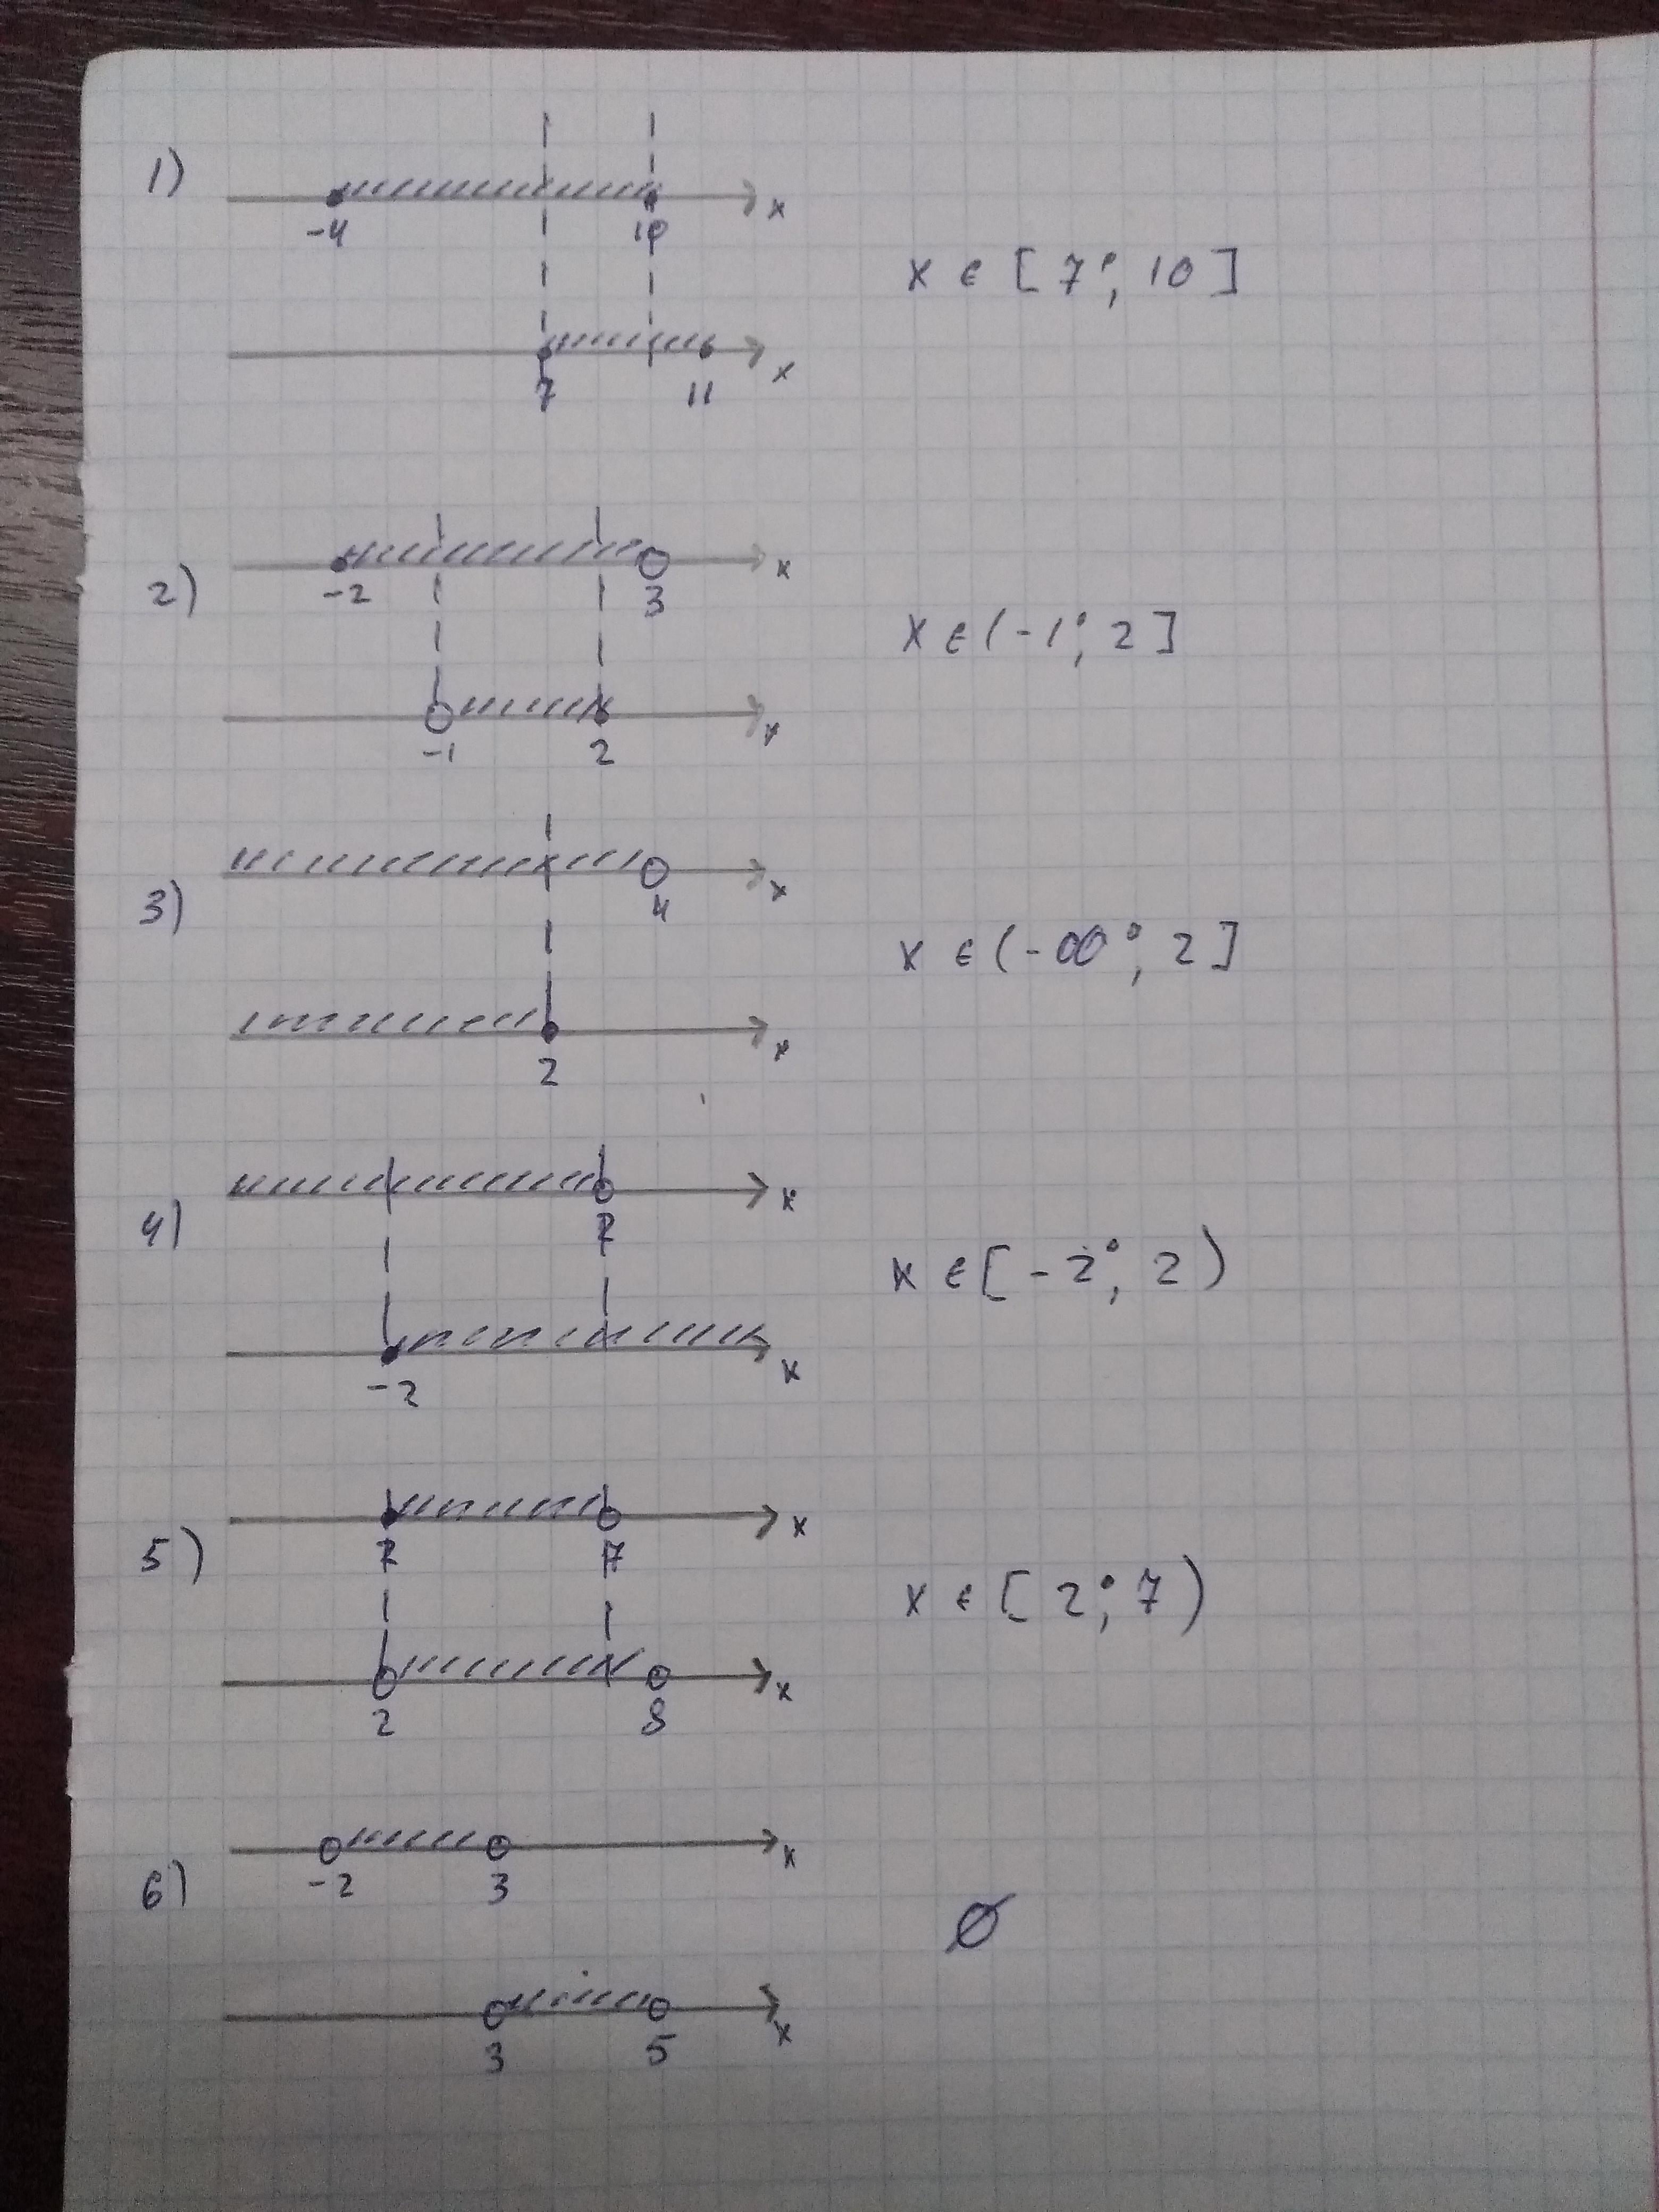 1)
x
-4 10
x ∈ [7; 10]
x
7 11
x
2)
-2 3
x ∈ (-1; 2]
x
-1 2
x
3)
4
x ∈ (-∞; 2]
x
2
x
4)
2
x ∈ [-2; 2)
x
-2
x
5)
2 7
x ∈ [2; 7)
x
2 8
x
6)
-2 3
∅
x
3 5